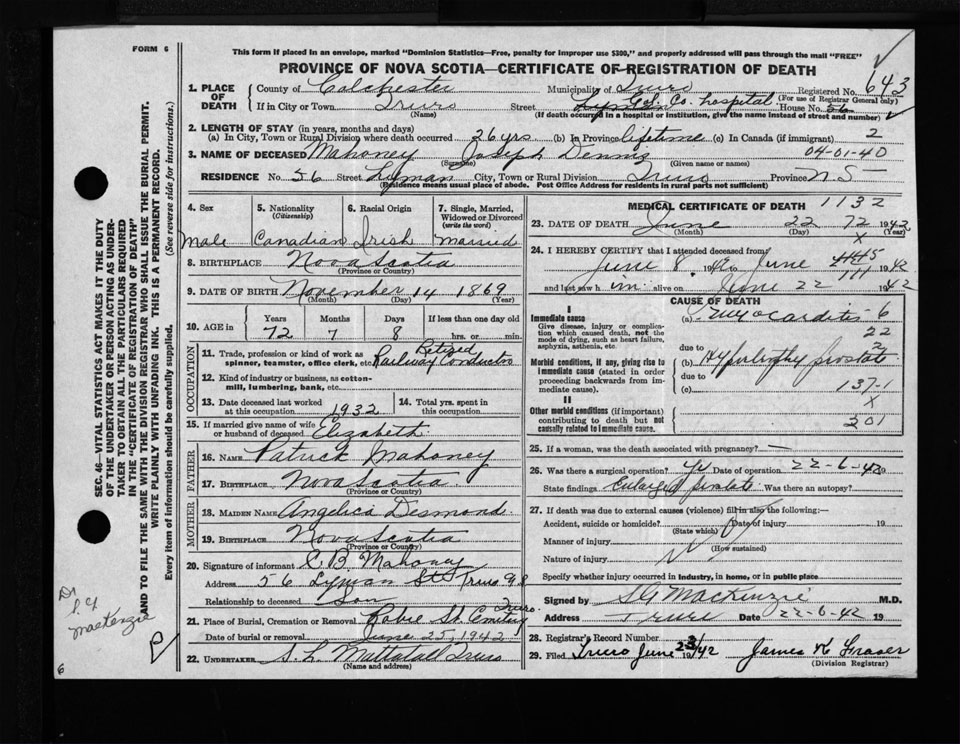 FORM 6
This form if placed in an envelope, marked "Dominion Statistics—Free, penalty for improper use $300," and properly addressed will pass through the mail "FREE"
PROVINCE OF NOVA SCOTIA—CERTIFICATE OF REGISTRATION OF DEATH
1. PLACE OF DEATH
County of Colchester Municipality of Truro Registered No. 643
(For use of Registrar General only)
If in City or Town Truro Street Lyman Col. Co. hospital House No. 56
(Name) (If death occurred in a hospital or institution, give the name instead of street and number)
2. LENGTH OF STAY (in years, months and days)
(a) In City, Town or Rural Division where death occurred 26 yrs (b) In Province lifetime (c) In Canada (if immigrant) 2
3. NAME OF DECEASED Mahoney Joseph Dennis 04-01-40
(Surname) (Given name or names)
RESIDENCE No. 56 Street Lyman City, Town or Rural Division Truro Province N.S
(Residence means usual place of abode. Post Office Address for residents in rural parts not sufficient)
4. Sex
Male
5. Nationality
(Citizenship)
Canadian
6. Racial Origin
Irish
7. Single, Married, Widowed or Divorced
(write the word)
Married
8. BIRTHPLACE Nova Scotia
(Province or Country)
9. DATE OF BIRTH November 14 1869
(Month) (Day) (Year)
10. AGE in Years Months Days If less than one day old
72 7 8 hrs. or min.
OCCUPATION
11. Trade, profession or kind of work as spinner, teamster, office clerk, etc. Retired Railway Conductor
12. Kind of industry or business, as cotton-mill, lumbering, bank, etc.
13. Date deceased last worked at this occupation 1932
14. Total yrs. spent in this occupation
15. If married give name of wife or husband of deceased Elizabeth
FATHER
16. NAME Patrick Mahoney
17. BIRTHPLACE Nova Scotia
(Province or Country)
MOTHER
18. MAIDEN NAME Angelica Desmond
19. BIRTHPLACE Nova Scotia
(Province or Country)
20. Signature of informant C B Mahoney
Address 56 Lyman St Truro N S
Relationship to deceased Son
21. Place of Burial, Cremation or Removal Robie St. Cemetery Truro
Date of burial or removal June 25, 1942
22. UNDERTAKER S. L. Mattatall Truro
(Name and address)
MEDICAL CERTIFICATE OF DEATH 1132
23. DATE OF DEATH June 22 72 1942
(Month) (Day) (Year)
x
24. I HEREBY CERTIFY that I attended deceased from
June 8, 1942 to June 1942
111
and last saw him alive on June 22 1942
CAUSE OF DEATH
I
Immediate cause
Give disease, injury or complication which caused death, not the mode of dying, such as heart failure, asphyxia, asthenia, etc.
(a) Myocarditis - 6
22
due to 2
Morbid conditions, if any, giving rise to immediate cause (stated in order proceeding backwards from immediate cause).
(b) Hypertrophy prostate
due to
(c) 137-1
x
II
Other morbid conditions (if important) contributing to death but not causally related to immediate cause.
201
25. If a woman, was the death associated with pregnancy? —
26. Was there a surgical operation? Yes Date of operation 22-6-42 19
State findings Enlarged prostate Was there an autopsy?
27. If death was due to external causes (violence) fill in also the following:—
Accident, suicide or homicide? Date of injury 19
(State which)
Manner of injury
(How sustained)
Nature of injury
Specify whether injury occurred in industry, in home, or in public place
Signed by S G MacKenzie M.D.
Address Truro Date 22-6-42 19
28. Registrar's Record Number
29. Filed Truro June 23 1942 James K Fraser
(Division Registrar)
SEC. 46—VITAL STATISTICS ACT MAKES IT THE DUTY OF THE UNDERTAKER OR PERSON ACTING AS UNDERTAKER TO OBTAIN ALL THE PARTICULARS REQUIRED IN THE "CERTIFICATE OF REGISTRATION OF DEATH" AND TO FILE THE SAME WITH THE DIVISION REGISTRAR WHO SHALL ISSUE THE BURIAL PERMIT.
WRITE PLAINLY WITH UNFADING INK. THIS IS A PERMANENT RECORD.
Every item of information should be carefully supplied. (See reverse side for instructions.)
Dr
MacKenzie
6